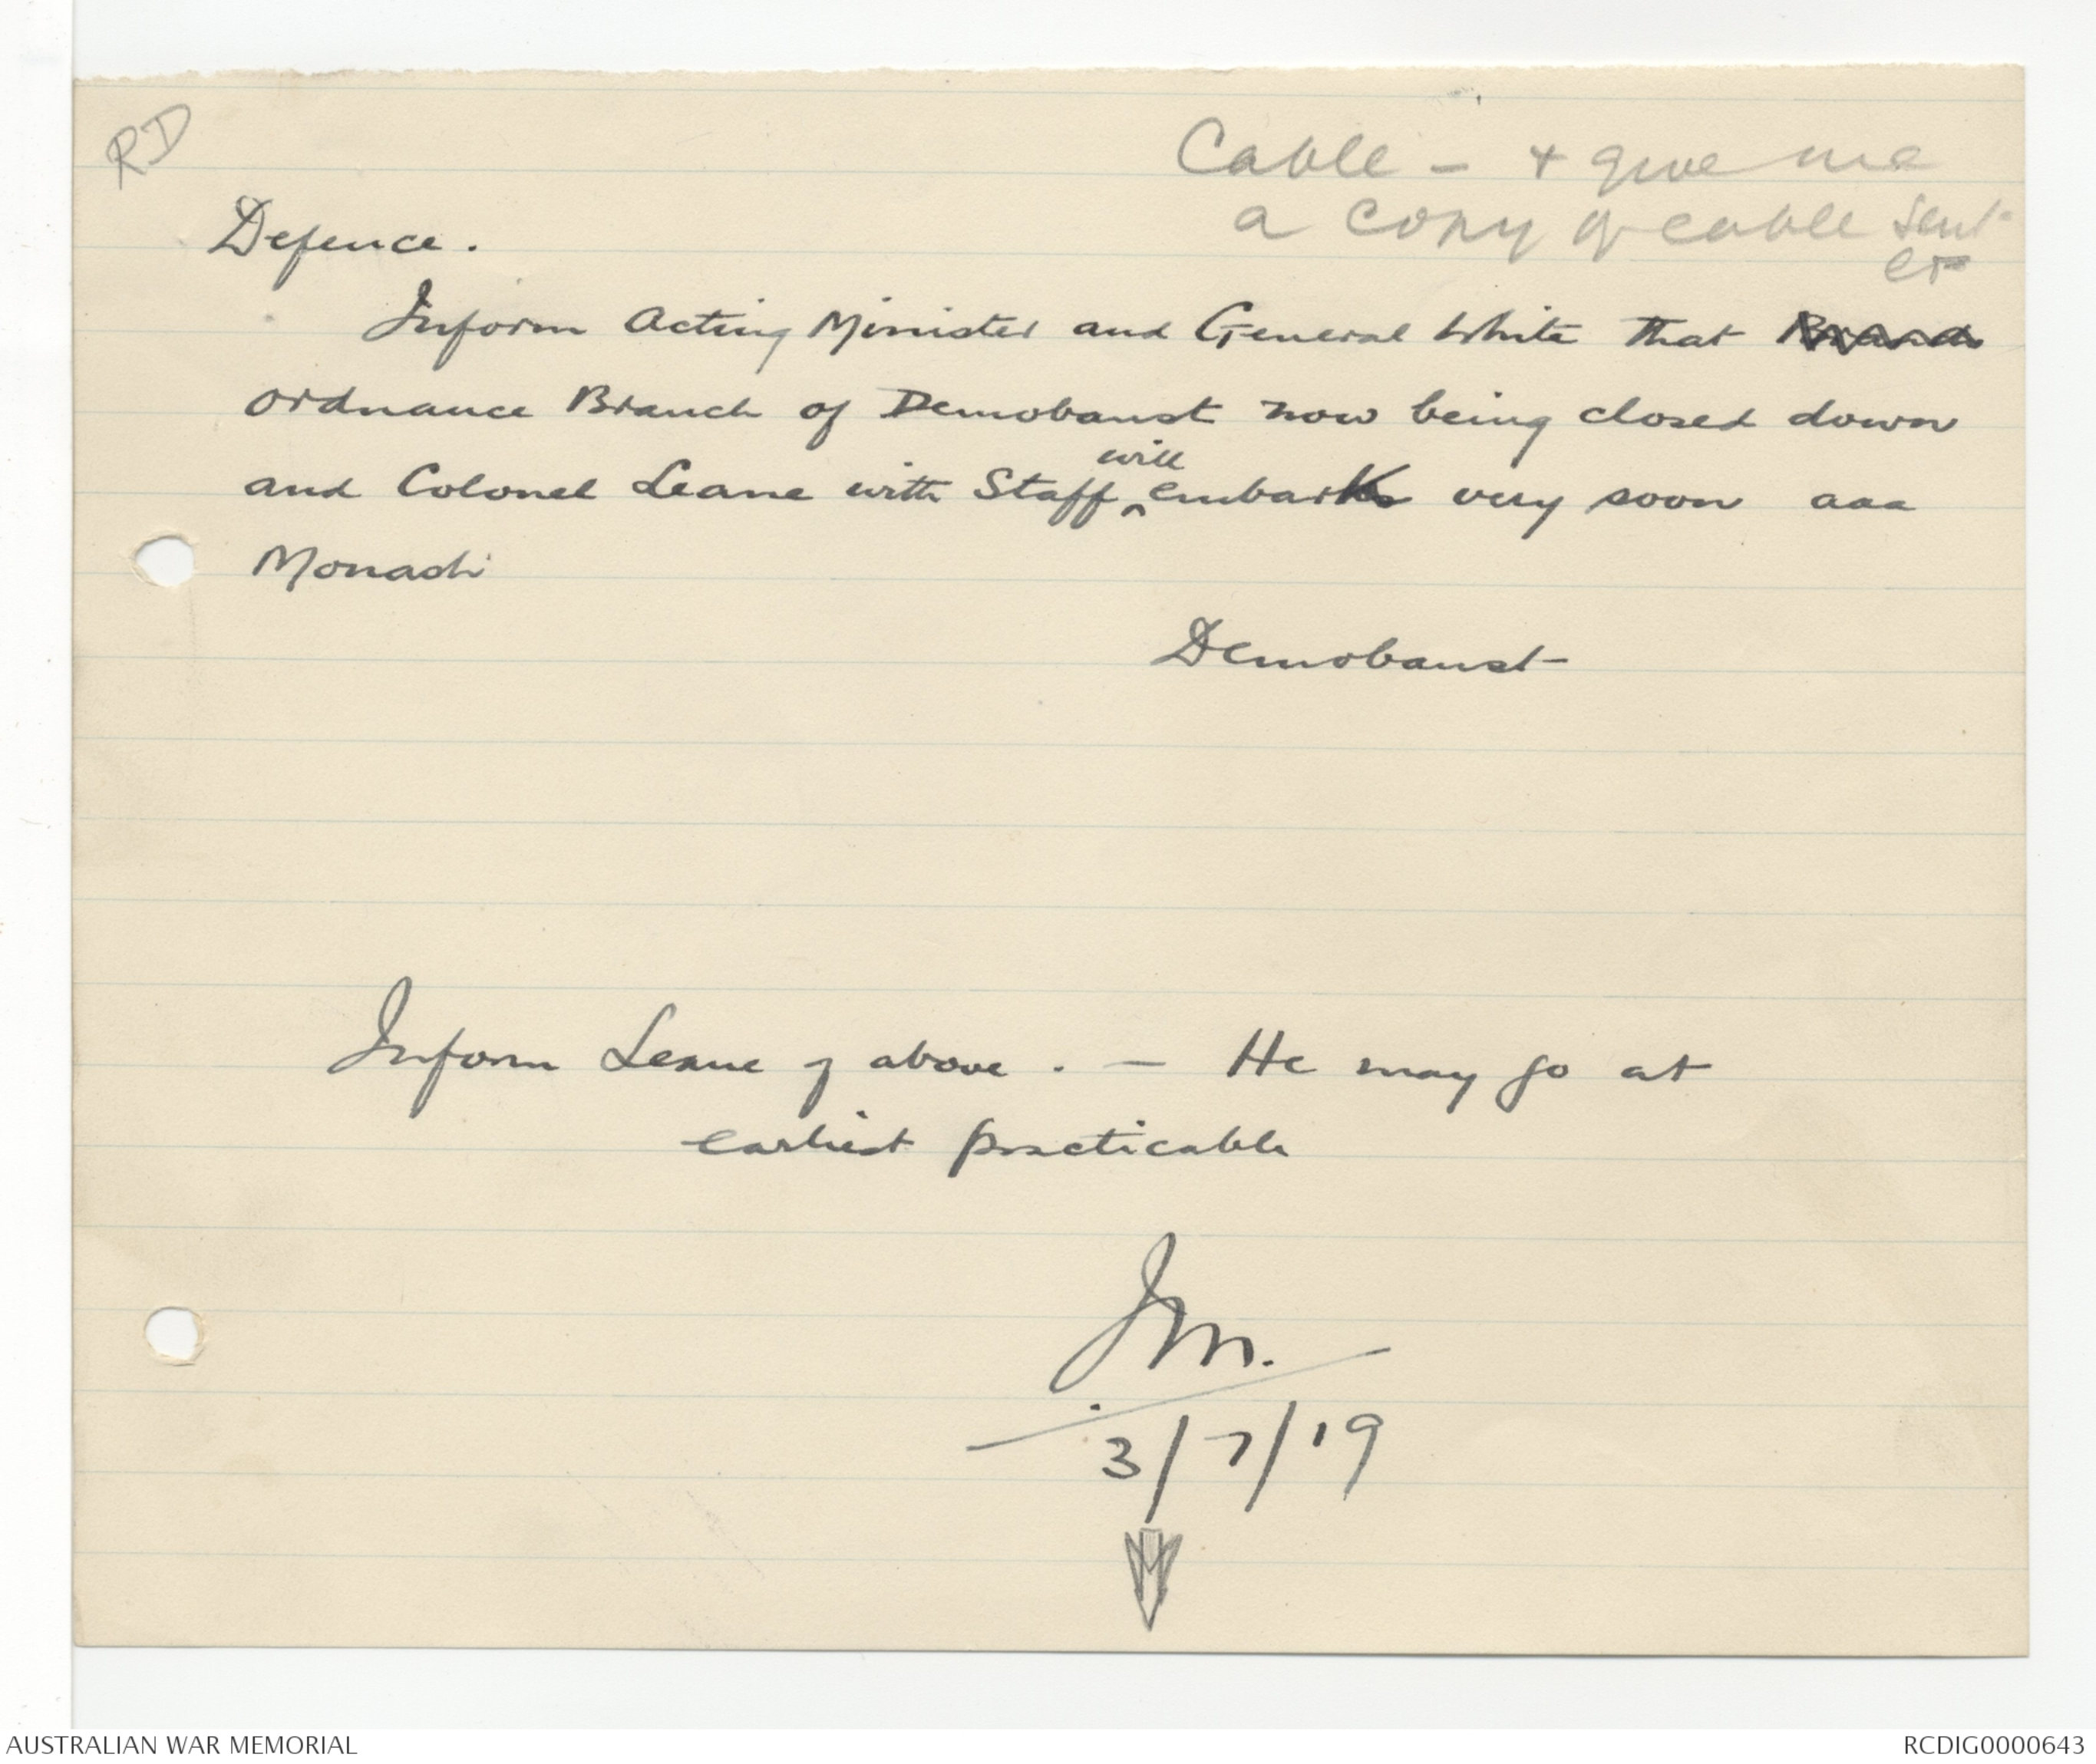 RD
Cable - + give me
a copy of cable sent
Defence.
Inform Acting Minister and General White that
Ordnance Branch of Demobaust now being closed down
and Colonel Leane with Staff will embark very soon aaa
Monash
Demobaust
Inform Leane of above. - He may go at
earliest practicable
JM.
3/7/19
AUSTRALIAN WAR MEMORIAL
RCDIG0000643